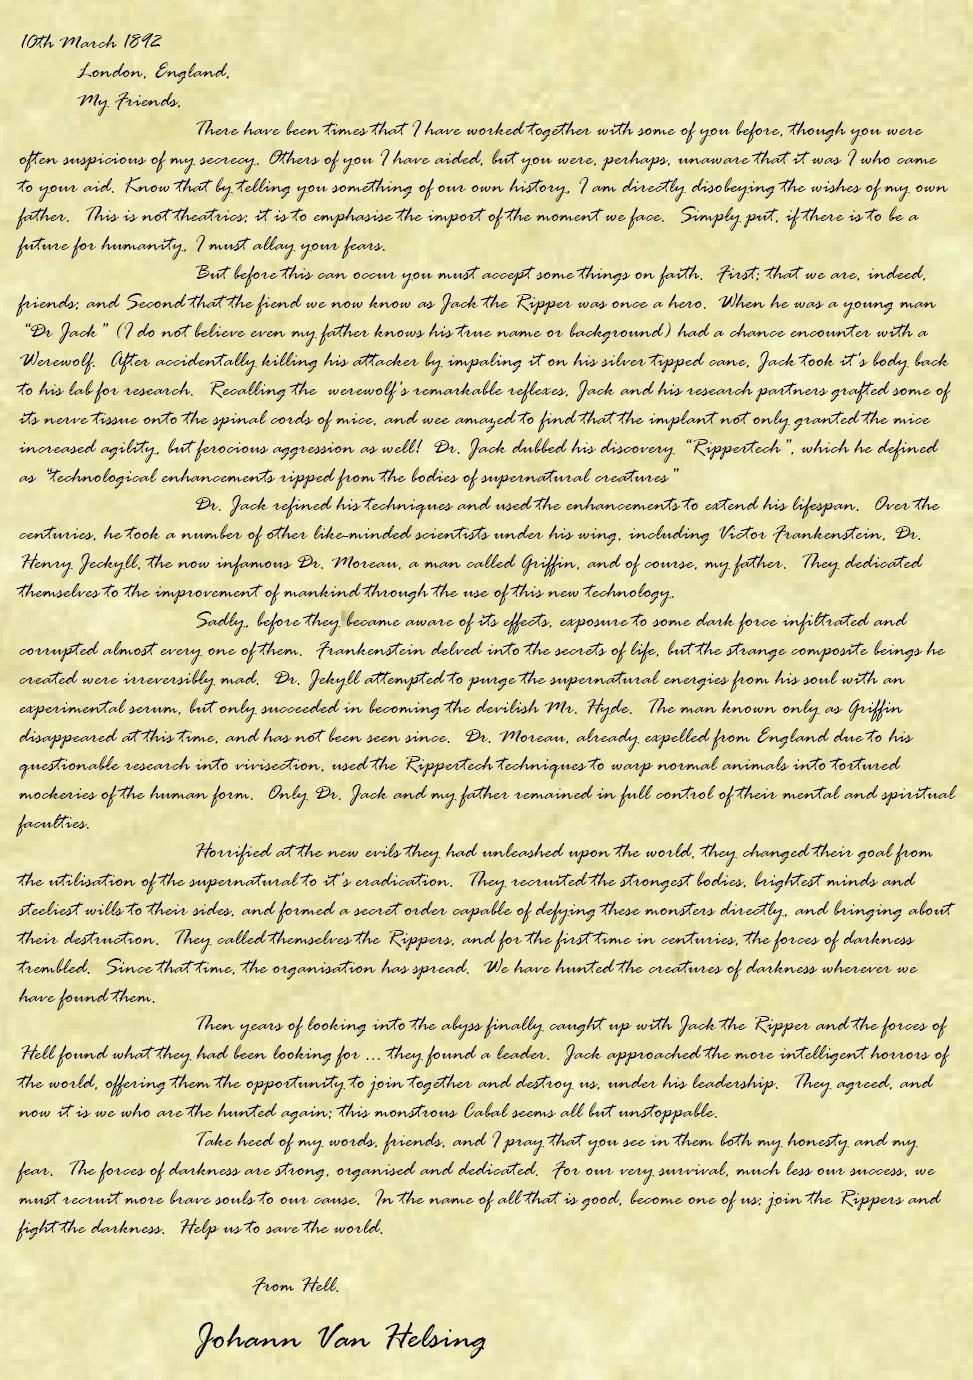 10th March 1892
London, England,
My Friends,
There have been times that I have worked together with some of you before, though you were
often suspicious of my secrecy. Others of you I have aided, but you were, perhaps, unaware that it was I who came
to your aid. Know that by telling you something of our own history, I am directly disobeying the wishes of my own
father. This is not theatrics; it is to emphasise the import of the moment we face. Simply put, if there is to be a
future for humanity, I must allay your fears.
But before this can occur you must accept some things on faith. First; that we are, indeed,
friends; and Second that the fiend we now know as Jack the Ripper was once a hero. When he was a young man
"Dr Jack" (I do not believe even my father knows his true name or background) had a chance encounter with a
Werewolf. After accidentally killing his attacker by impaling it on his silver tipped cane, Jack took it's body back
to his lab for research. Recalling the werewolf's remarkable reflexes, Jack and his research partners grafted some of
its nerve tissue onto the spinal cords of mice, and wee amazed to find that the implant not only granted the mice
increased agility, but ferocious aggression as well! Dr. Jack dubbed his discovery "Rippertech", which he defined
as "technological enhancements ripped from the bodies of supernatural creatures"
Dr. Jack refined his techniques and used the enhancements to extend his lifespan. Over the
centuries, he took a number of other like-minded scientists under his wing, including Victor Frankenstein, Dr.
Henry Jeckyll, the now infamous Dr. Moreau, a man called Griffin, and of course, my father. They dedicated
themselves to the improvement of mankind through the use of this new technology.
Sadly, before they became aware of its effects, exposure to some dark force infiltrated and
corrupted almost every one of them. Frankenstein delved into the secrets of life, but the strange composite beings he
created were irreversibly mad. Dr. Jekyll attempted to purge the supernatural energies from his soul with an
experimental serum, but only succeeded in becoming the devilish Mr. Hyde. The man known only as Griffin
disappeared at this time, and has not been seen since. Dr. Moreau, already expelled from England due to his
questionable research into vivisection, used the Rippertech techniques to warp normal animals into tortured
mockeries of the human form. Only Dr. Jack and my father remained in full control of their mental and spiritual
faculties.
Horrified at the new evils they had unleashed upon the world, they changed their goal from
the utilisation of the supernatural to it's eradication. They recruited the strongest bodies, brightest minds and
steeliest wills to their sides, and formed a secret order capable of defying these monsters directly, and bringing about
their destruction. They called themselves the Rippers, and for the first time in centuries, the forces of darkness
trembled. Since that time, the organisation has spread. We have hunted the creatures of darkness wherever we
have found them.
Then years of looking into the abyss finally caught up with Jack the Ripper and the forces of
Hell found what they had been looking for ... they found a leader. Jack approached the more intelligent horrors of
the world, offering them the opportunity to join together and destroy us, under his leadership. They agreed, and
now it is we who are the hunted again; this monstrous Cabal seems all but unstoppable.
Take heed of my words, friends, and I pray that you see in them both my honesty and my
fear. The forces of darkness are strong, organised and dedicated. For our very survival, much less our success, we
must recruit more brave souls to our cause. In the name of all that is good, become one of us; join the Rippers and
fight the darkness. Help us to save the world.
From Hell,
Johann Van Helsing